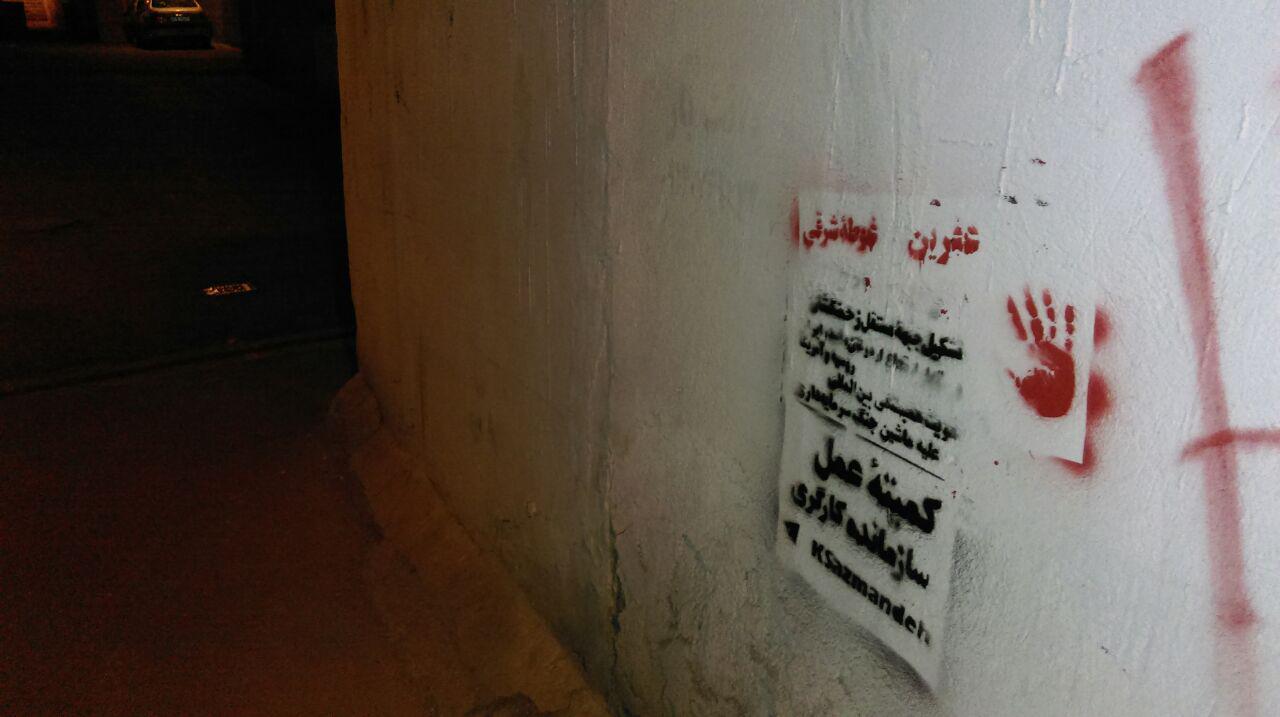 عفرین غوطهٔ شرقی
تشکیل جبههٔ مستقل زحمتکشان
روسیه و آمریکا
تقویت همبستگی بین‌المللی
علیه ماشین جنگ سرمایه‌داری
کمیتهٔ عمل
سازماندهٔ کارگری
Ksazmandeh